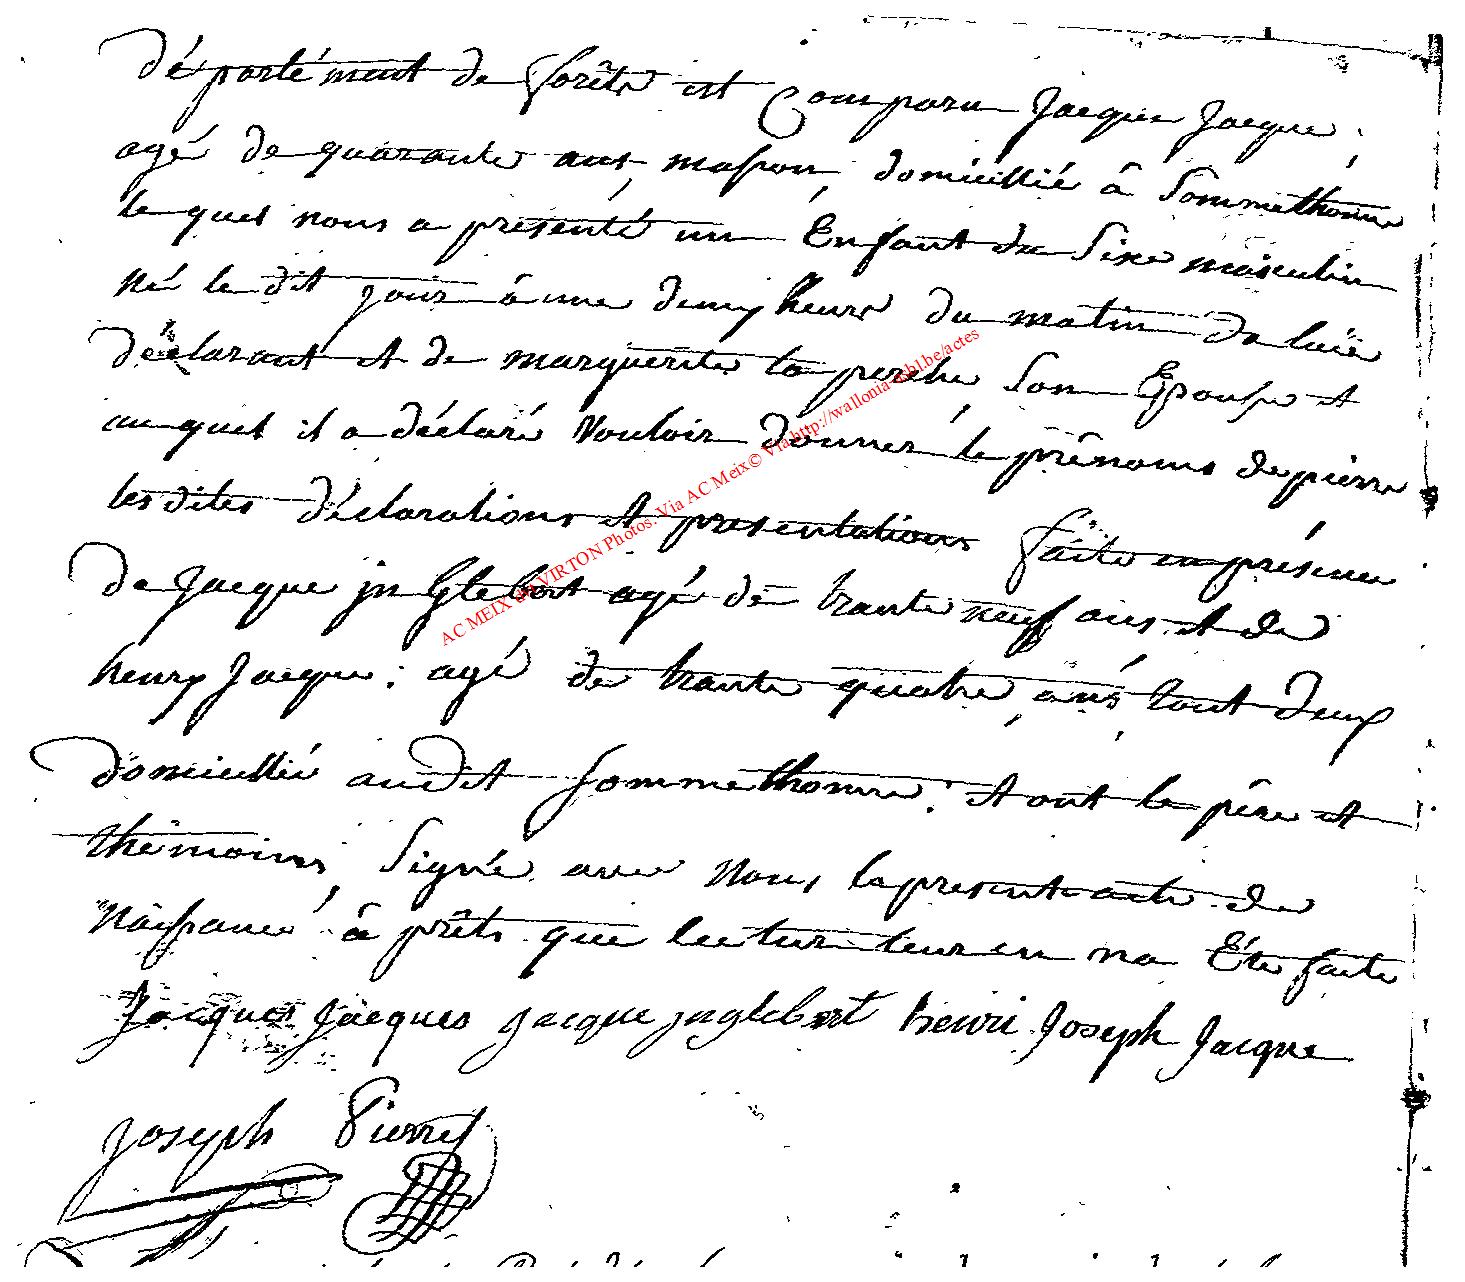 département de forêts est Comparu Jacques Jacque.
agé de quarante ans, masson, domicillié à Sommethonne
le quel nous a présenté un Enfant du Sexe masculin
né le dit jour à une demy heure du matin de luie
déclarant et de marguerite la perche, Son Epouse et
au quel il a déclaré Vouloir donner le prénoms de pierre
les dites déclarations et presentations faite en présence
de Jacque jn Glebert agé de trante neuf ans et de
henry Jacque: agé de trante quatre ans, tout deux
domicillié audit Sommethonne: et ont le père et
thémoins, Signé avec Nous la present acte de
Naissance à prêts que lecture leur en na Eté faite
Jacques Jacques Jacque jnglebert henri Joseph Jacque
Joseph Pierret
AC MEIX dvt VIRTON Photos. Via AC Meix© Via http://wallonia-asbl.be/actes